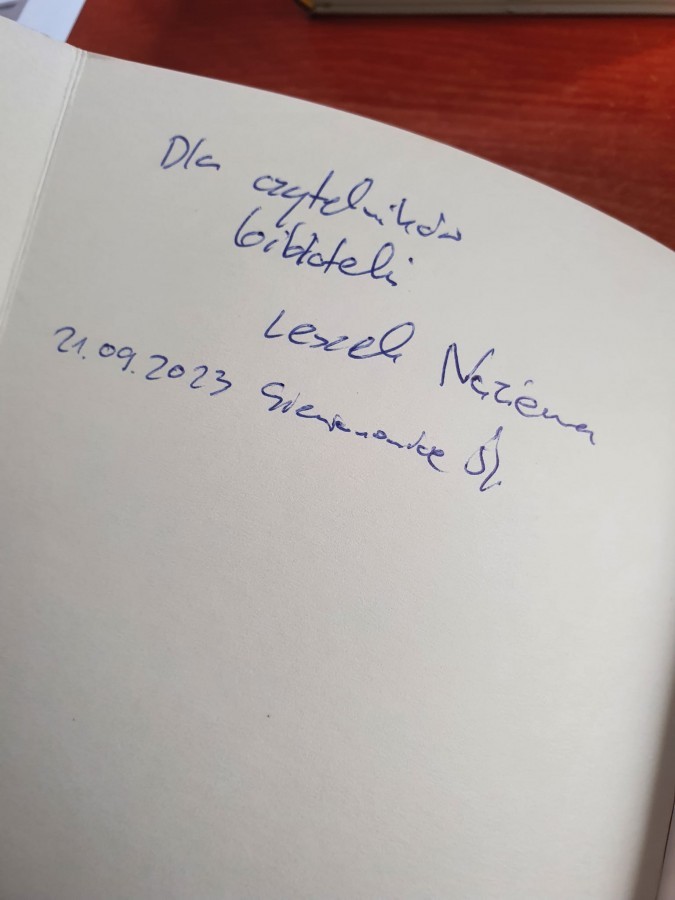 Dla czytelników
biblioteki
Leszek Naziemiec
21.09.2023 Siemianowice Śl.